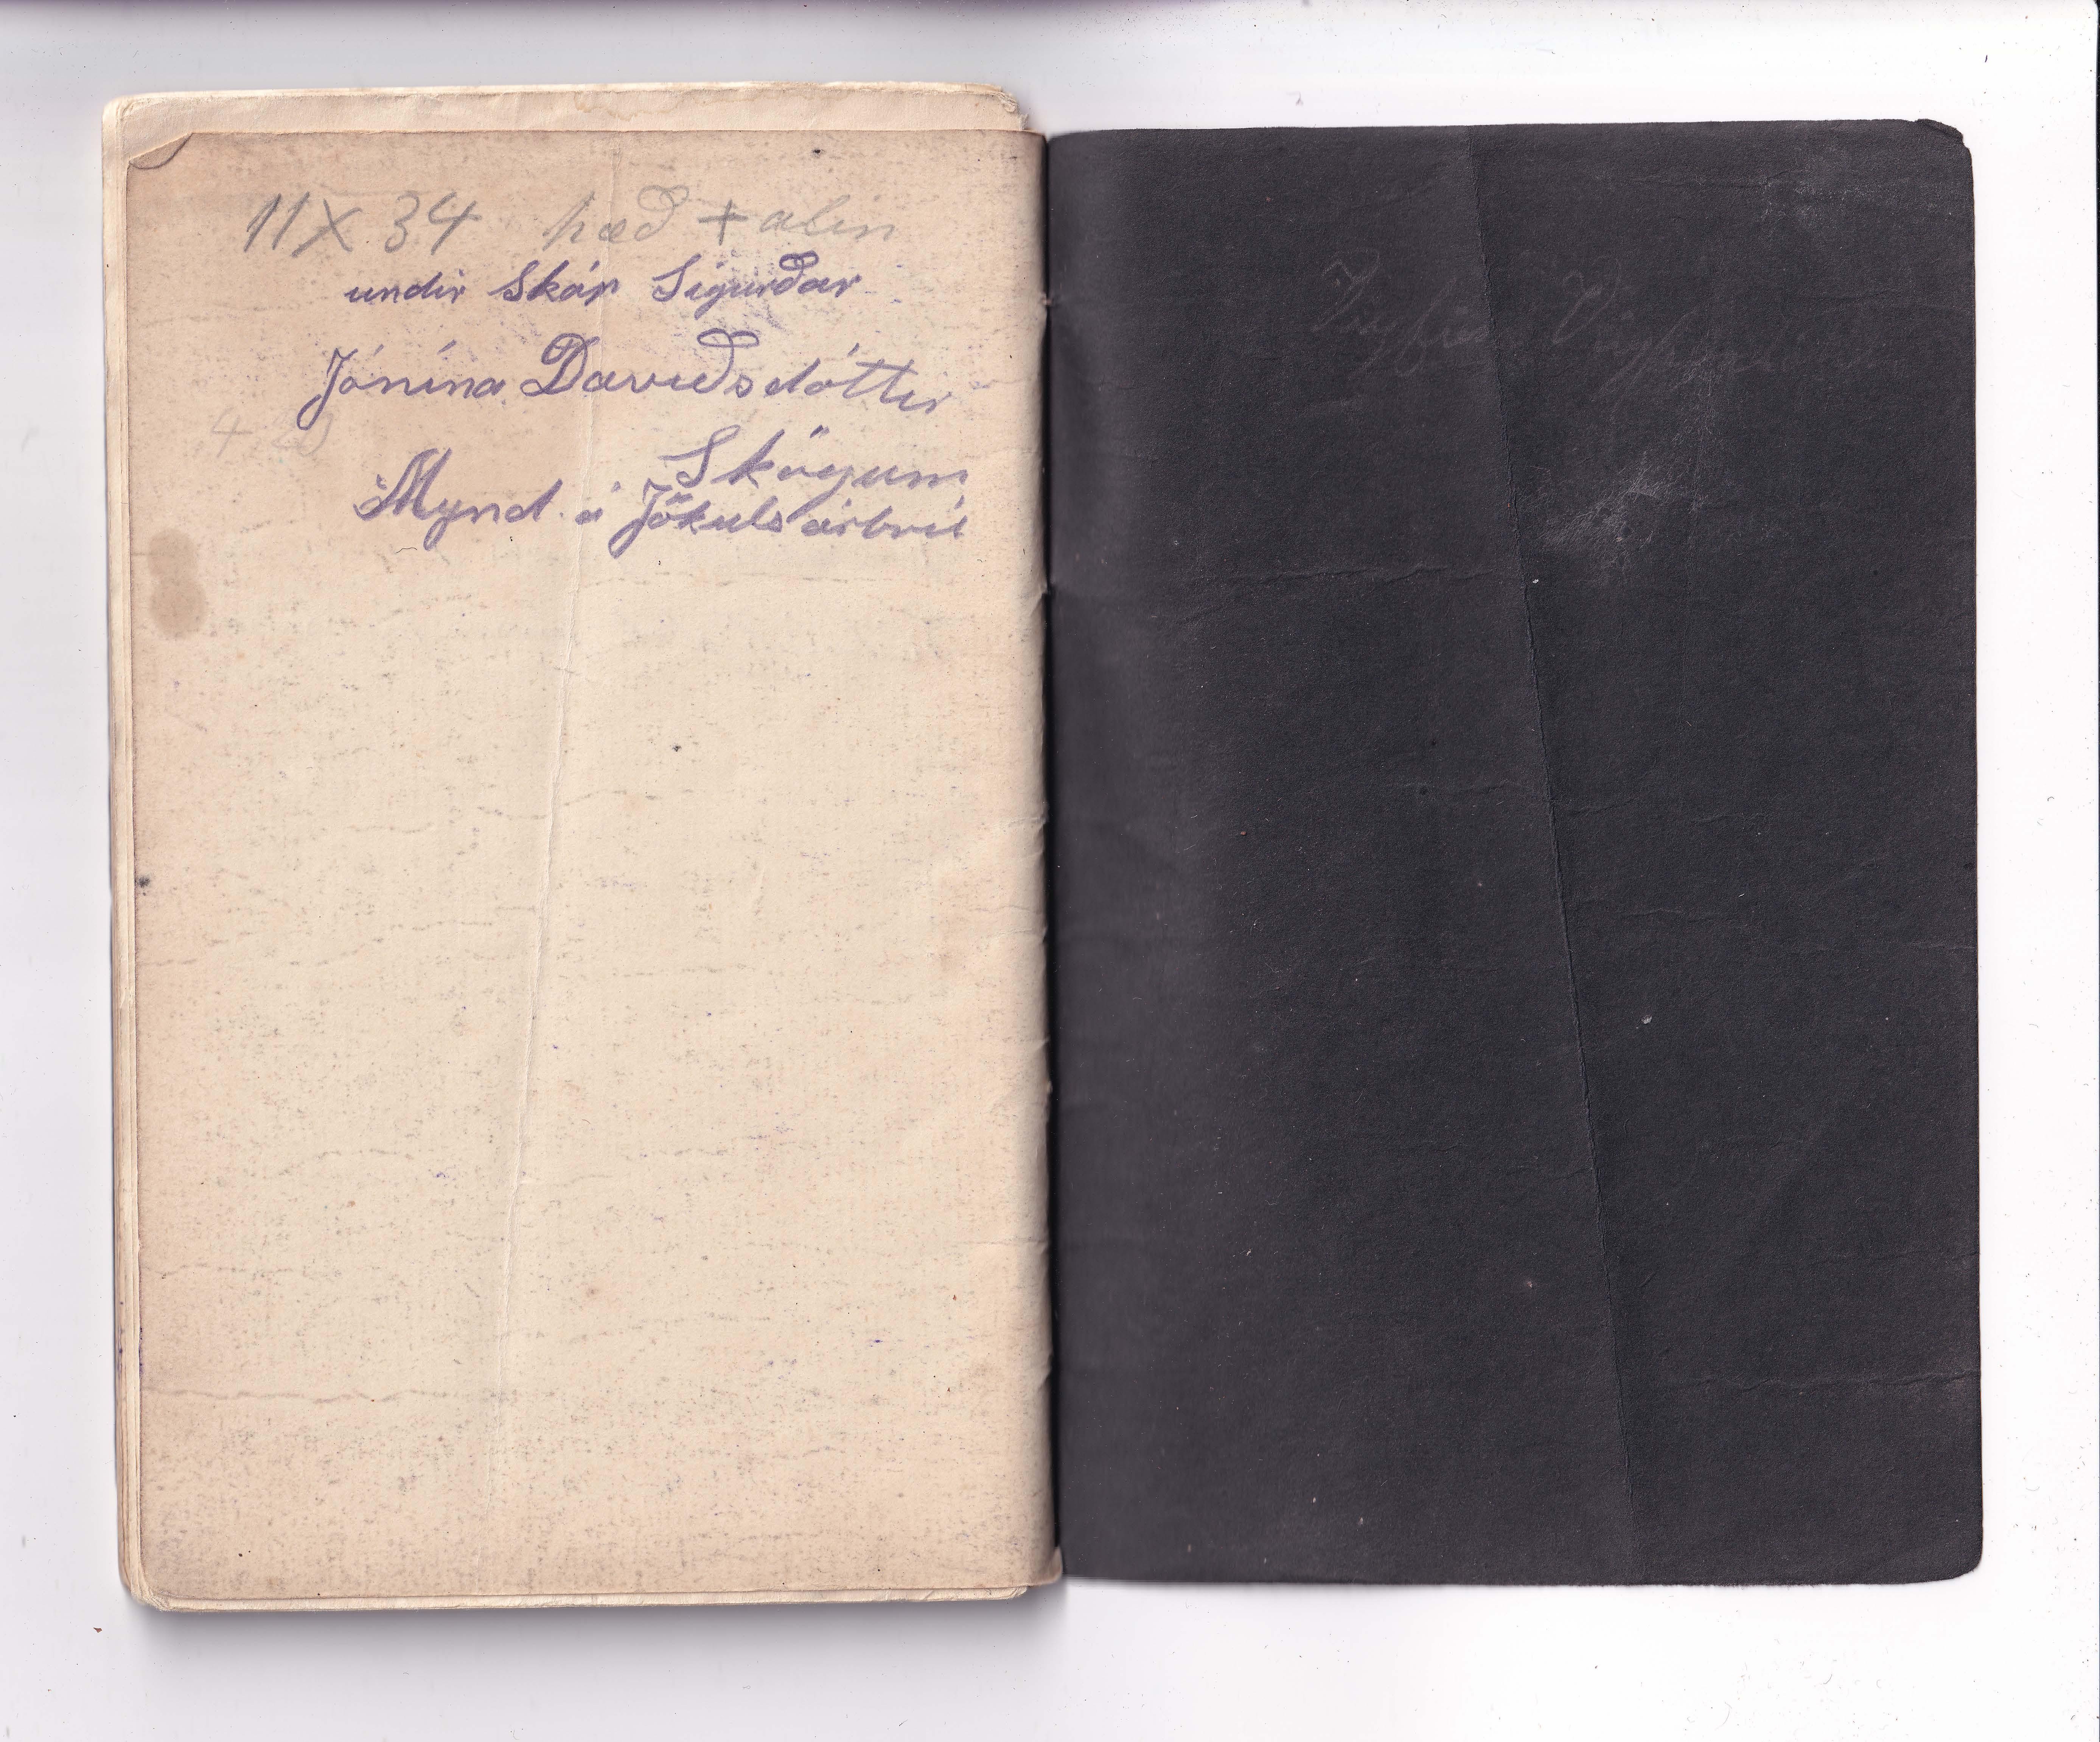 11 X 34 hæð + alin
undir Skáp Sigurðar
Jónína Davíðsdóttir
4,20
Skógum
Mynd á Jökulsárbrú
Vigfús Vigfússon